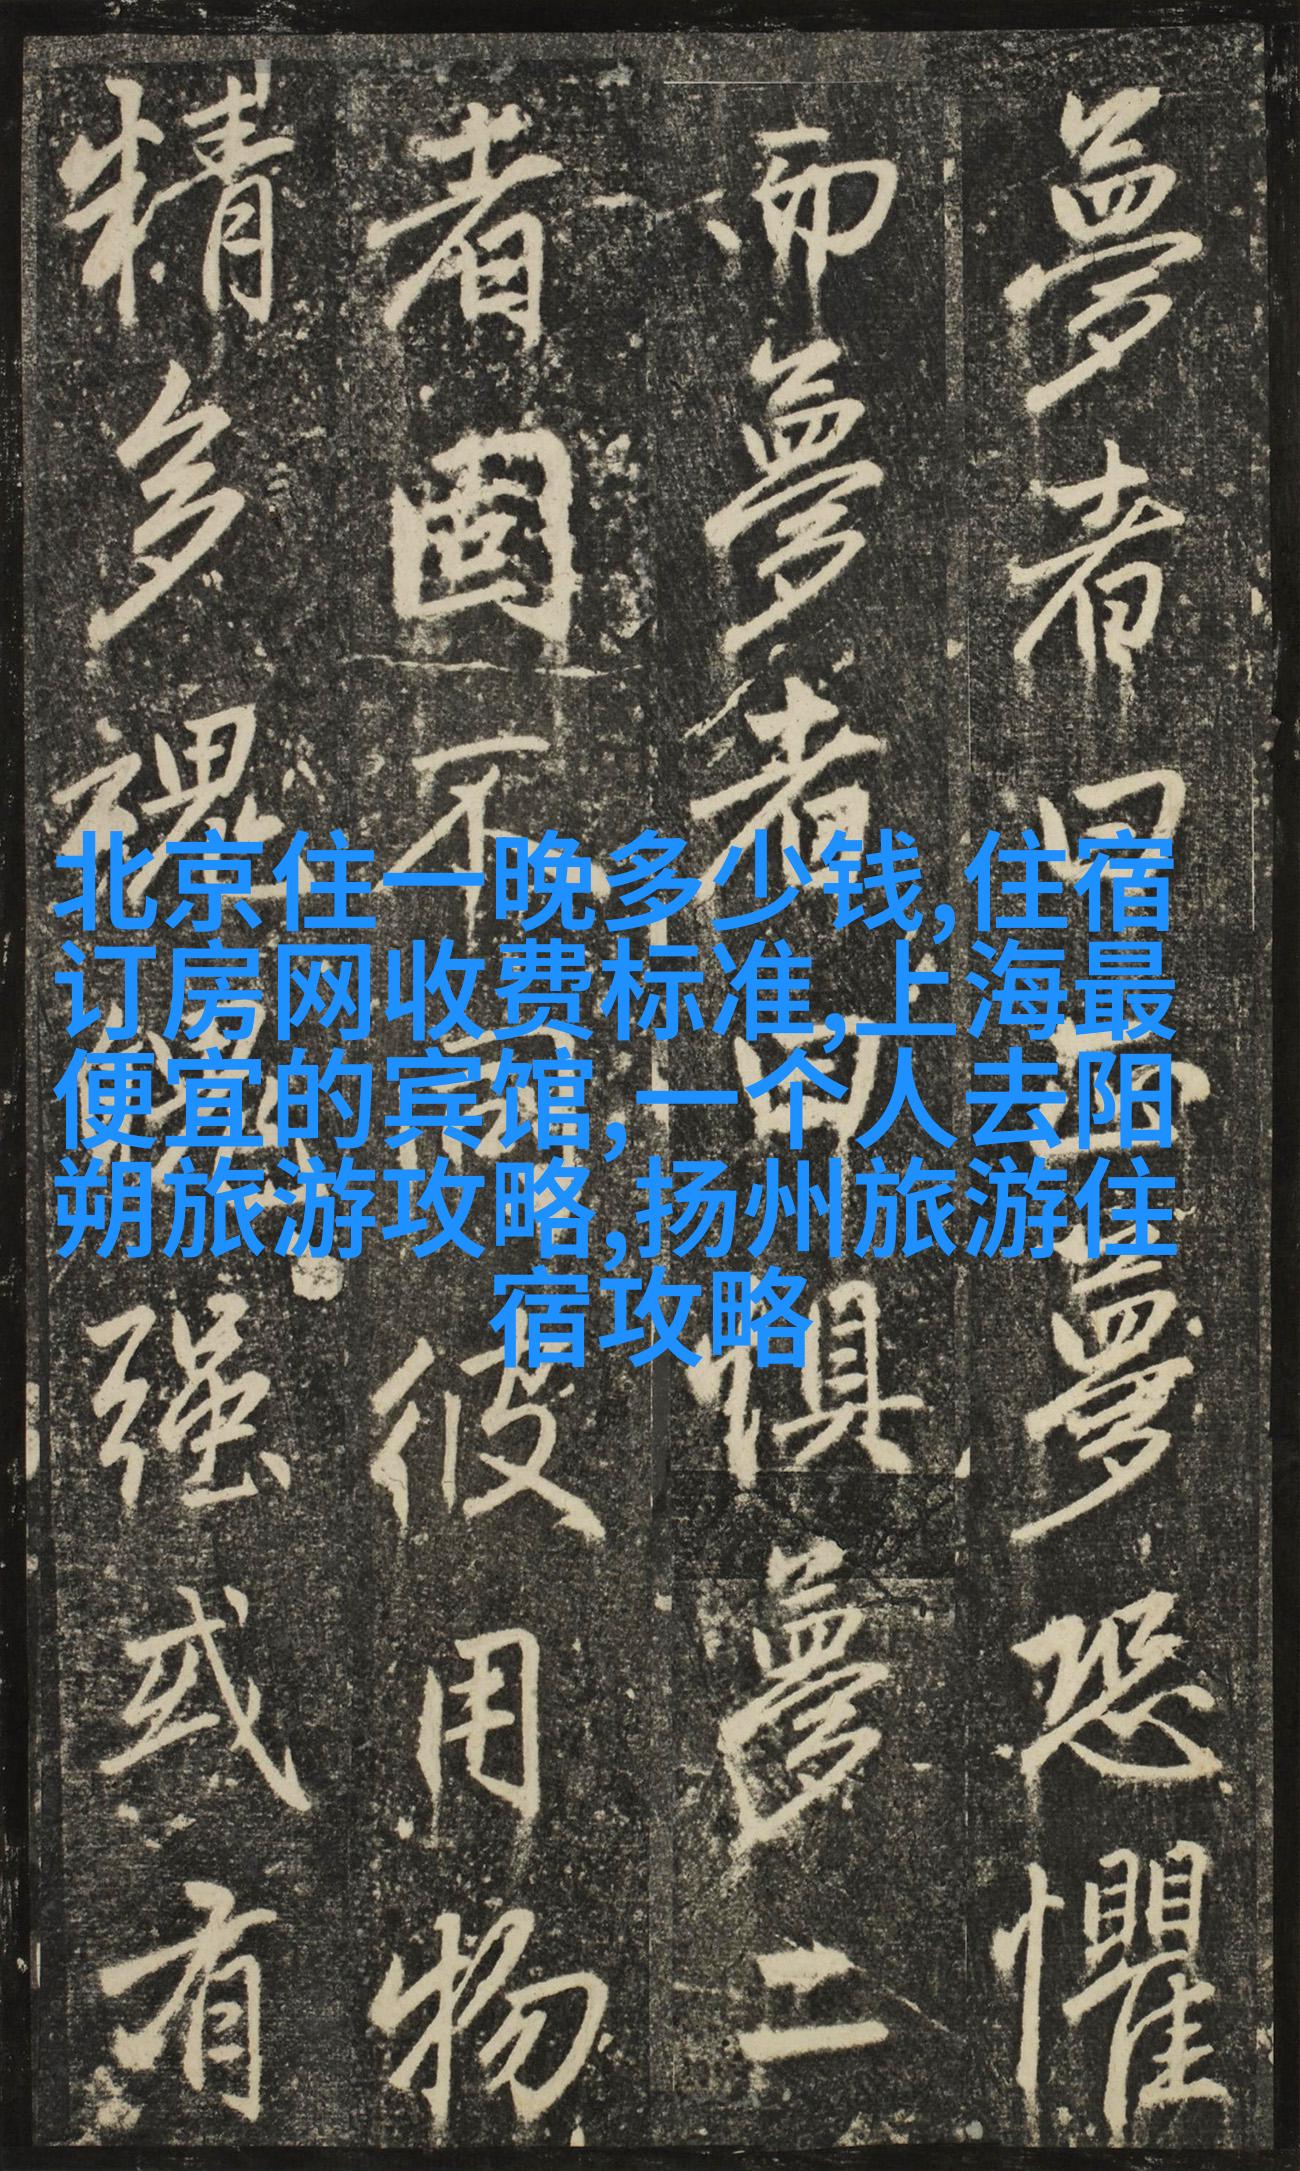 夢者曰夢恐懼
而夢者曰懼夢二
者固不彼用物
精多魂强或有
北京住一晚多少钱,住宿
订房网收费标准,上海最
便宜的宾馆, 一个人去阳
朔旅游攻略,扬州旅游住
宿攻略